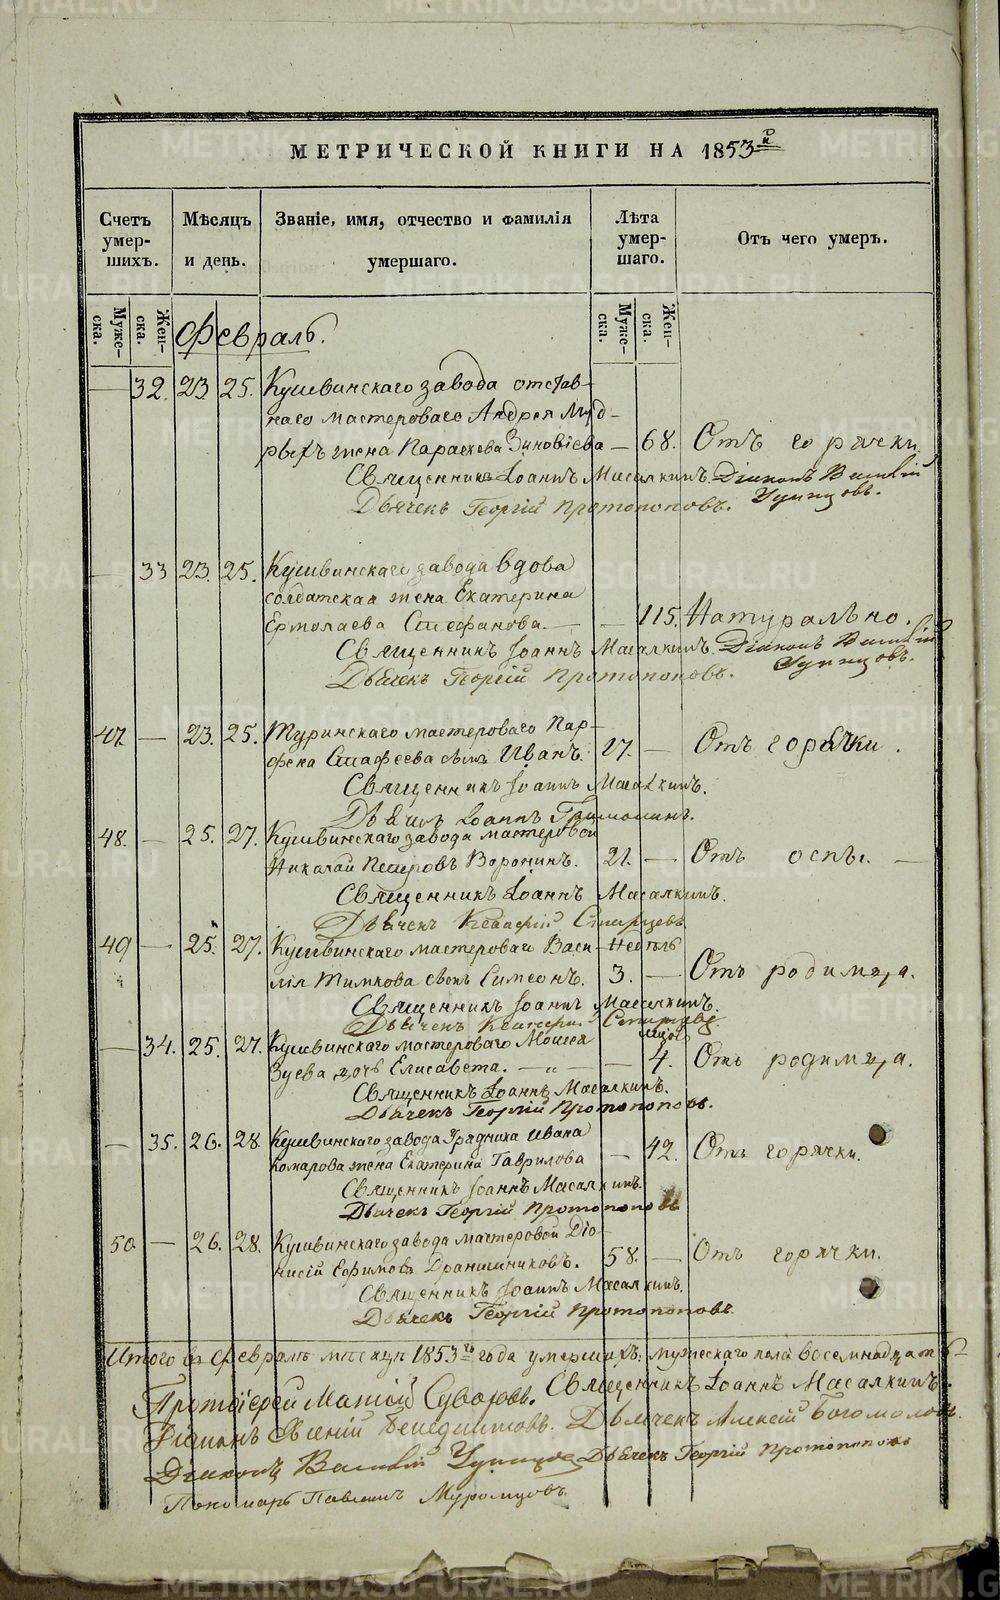 МЕТРИЧЕСКОЙ КНИГИ НА 1853й
Счетъ умер-шихъ.
Мѣсяцъ и день.
Званіе, имя, отчество и фамилія умершаго.
Лѣта умер-шаго.
Отъ чего умеръ.
Муже-ска. Жен-ска.
Муже-ска. Жен-ска.
Февраль.
— 32. 23 25. Кушвинскаго завода отстав-
наго мастероваго Андрея Муд-
рыхъ жена Параскева Зиновіева — 68. Отъ горячки.
Священникъ Іоаннъ Масалкинъ. Діаконъ Василій
Дьячекъ Георгій Протопоповъ.
— 33 23. 25. Кушвинскаго завода вдова
солдатская жена Екатерина
Ермолаева Стефанова. — — 115. Натурально.
Священникъ Іоаннъ Масалкинъ. Діаконъ Василій
Дьячекъ Георгій Протопоповъ.
47. — 23. 25. Туринскаго мастероваго Пар-
фена Стафеева сынъ Иванъ. 27. — Отъ горячки.
Священникъ Іоаннъ Масалкинъ.
Іоаннъ
48. — 25. 27. Кушвинскаго завода мастеровой
Николай Петровъ Воронинъ. 21. — Отъ оспы. —
Священникъ Іоаннъ Масалкинъ.
Дьячекъ Стярцевъ
49 — 25. 27. Кушвинскаго мастероваго Васи- недѣль
лія Тимкова сынъ Симеонъ. 3. — Отъ родимца.
Священникъ Іоаннъ Масалкинъ.
Дьячекъ
— 34. 25. 27. Кушвинскаго мастероваго Моисея
Зуева дочь Елисавета. — „ — — 4. Отъ родимца.
Священникъ Іоаннъ Масалкинъ.
Дьячекъ Георгій Протопоповъ.
— 35. 26. 28. Кушвинскаго завода Урядника Ивана
Комарова жена Екатерина Гаврилова — 42. Отъ горячки.
Священникъ Іоаннъ Масалкинъ.
Дьячекъ Георгій Протопоповъ
50. — 26. 28. Кушвинскаго завода мастеровой Діо-
нисій Ефимовъ Дранишниковъ. 58. — Отъ горячки.
Священникъ Іоаннъ Масалкинъ.
Дьячекъ Георгій Протопоповъ.
Итого въ февралѣ мѣсяцѣ 1853го года умершихъ: мужескаго пола восемнадцать
Протоіерей Суворовъ. Священникъ Іоаннъ Масалкинъ.
Діаконъ Дьячекъ Алексій Богомоловъ.
Діаконъ Василій Дьячекъ Георгій Протопоповъ
Пономарь Муромцовъ.
METRIKI.GASO-URAL.RU